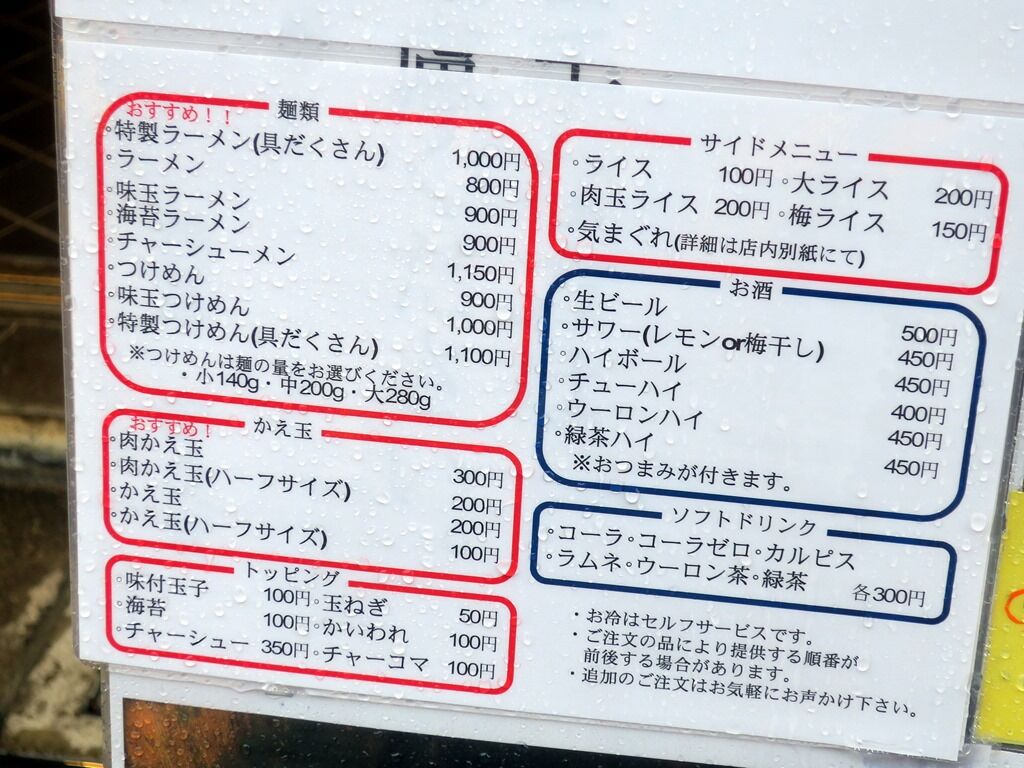 麺類
おすすめ！！
◦特製ラーメン(具だくさん) 1,000円
◦ラーメン 800円
◦味玉ラーメン 900円
◦海苔ラーメン 900円
◦チャーシューメン 1,150円
◦つけめん 900円
◦味玉つけめん 1,000円
◦特製つけめん(具だくさん) 1,100円
※つけめんは麺の量をお選びください。
・小140g・中200g・大280g
かえ玉
おすすめ！
◦肉かえ玉 300円
◦肉かえ玉(ハーフサイズ) 200円
◦かえ玉 200円
◦かえ玉(ハーフサイズ) 100円
トッピング
◦味付玉子 100円◦玉ねぎ 50円
◦海苔 100円◦かいわれ 100円
◦チャーシュー 350円◦チャーコマ 100円
サイドメニュー
◦ライス 100円◦大ライス 200円
◦肉玉ライス 200円◦梅ライス 150円
◦気まぐれ(詳細は店内別紙にて)
お酒
◦生ビール 500円
◦サワー(レモンor梅干し) 450円
◦ハイボール 450円
◦チューハイ 400円
◦ウーロンハイ 450円
◦緑茶ハイ 450円
※おつまみが付きます。
ソフトドリンク
◦コーラ◦コーラゼロ◦カルピス
◦ラムネ◦ウーロン茶◦緑茶 各300円
・お冷はセルフサービスです。
・ご注文の品により提供する順番が
前後する場合があります。
・追加のご注文はお気軽にお声かけ下さい。